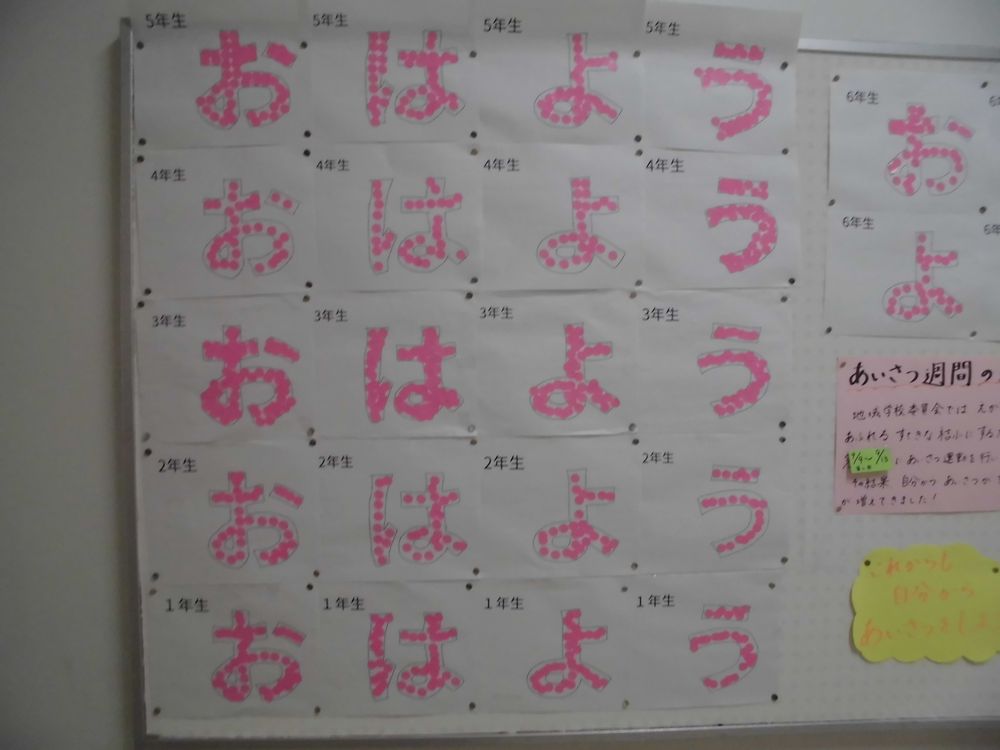 5年生 5年生 5年生 5年生
お は よ う
4年生 4年生 4年生 4年生
お は よ う
3年生 3年生 3年生 3年生
お は よ う
2年生 2年生 2年生 2年生
お は よ う
1年生 1年生 1年生 1年生
お は よ う
6年生 6
お
6年生 6年
よ
あいさつ週間の
地域学校委員会では
あふれる すてきな
9/9〜9/13 あいさつ運動を行い
結果 自分から あいさつが
が 増えてきました!
これからも
自分から
あいさつをしま